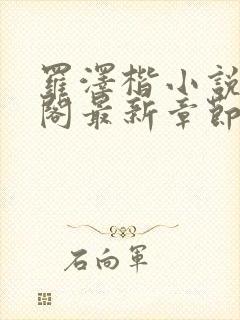 羅澤楷小說
閣最新章節
石向軍